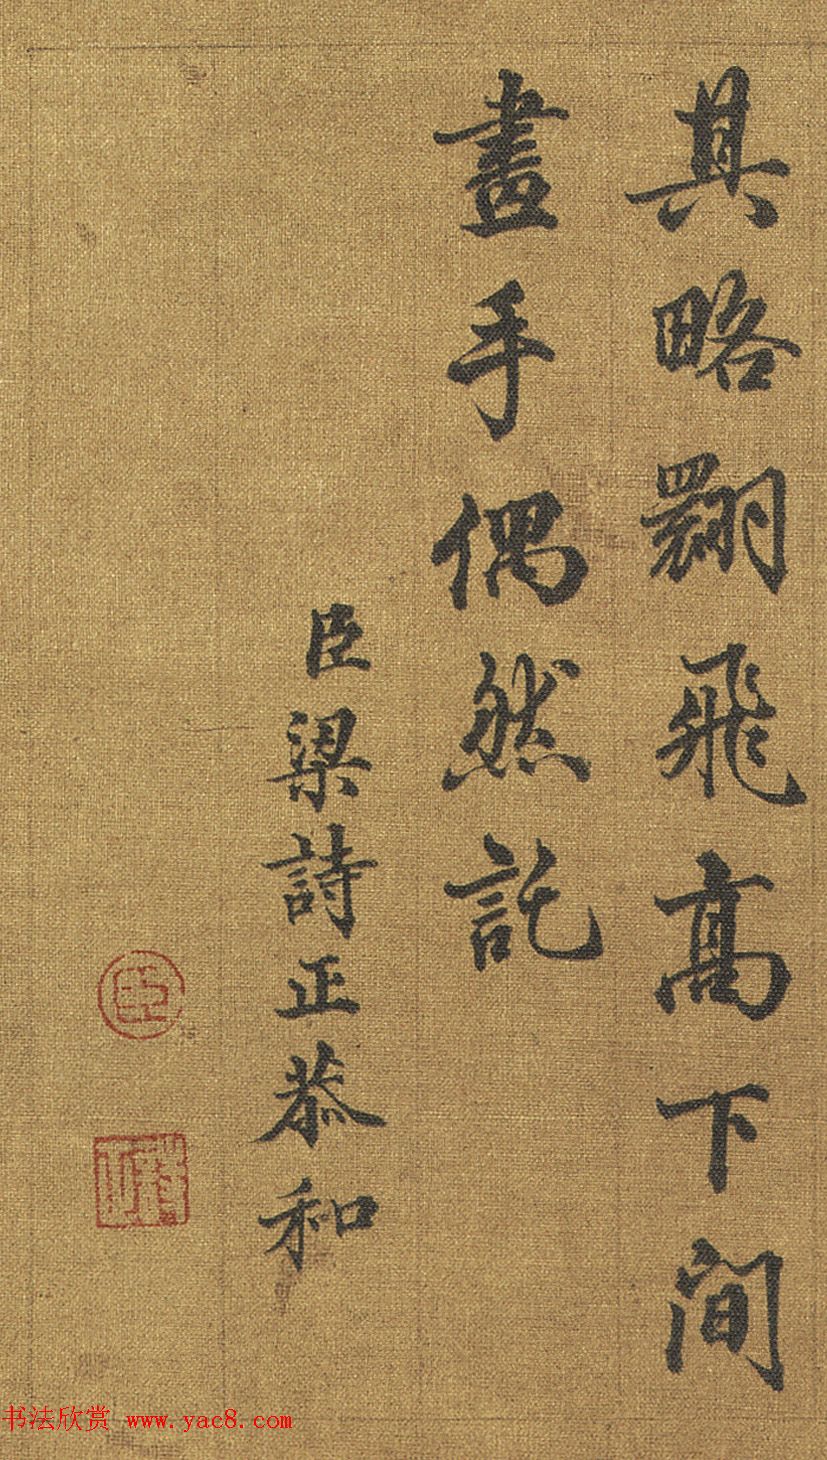 其略翾飛高下間
畫手偶然託
臣梁詩正恭和
臣
詩正
书法欣赏 www.yac8.com